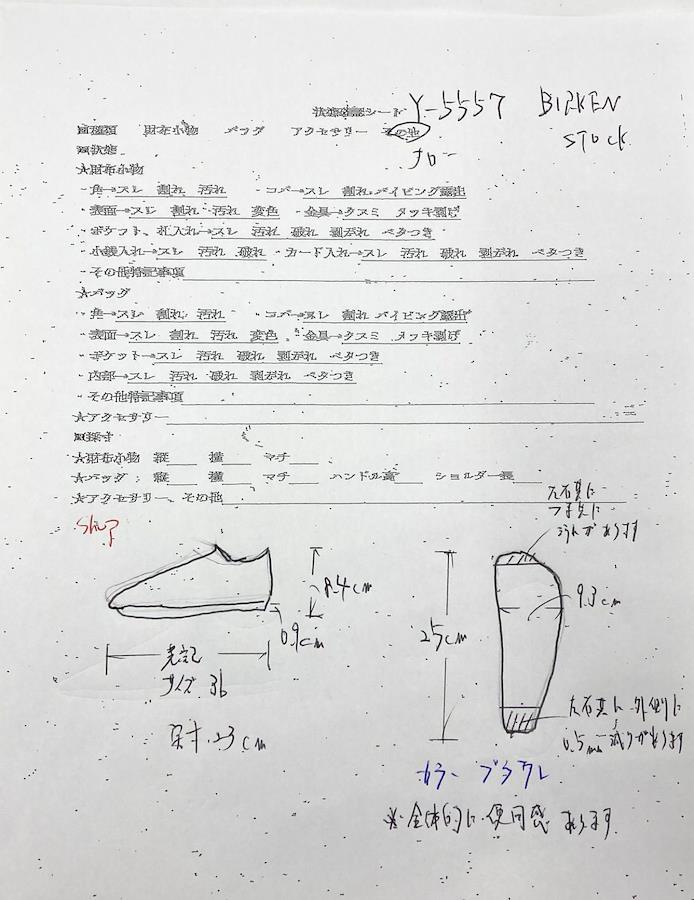 状態確認シート Y-5557 BIRKEN
STOCK
■種類 財布小物 バッグ アクセサリー その他
ナロー
■状態
★財布小物
・角→スレ 割れ 汚れ ・コバ→スレ 割れ パイピング露出
・表面→スレ 割れ 汚れ 変色 ・金具→クスミ メッキ剥げ
・ポケット、札入れ→スレ 汚れ 破れ 剥がれ ベタつき
・小銭入れ→スレ 汚れ 破れ ・カード入れ→スレ 汚れ 破れ 剥がれ ベタつき
・その他特記事項
★バッグ
・角→スレ 割れ 汚れ ・コバ→スレ 割れ パイピング露出
・表面→スレ 割れ 汚れ 変色 ・金具→クスミ メッキ剥げ
・ポケット→スレ 汚れ 破れ 剥がれ ベタつき
・内部→スレ 汚れ 破れ 剥がれ ベタつき
・その他特記事項
★アクセサリー
■採寸
★財布小物 縦 横 マチ
★バッグ 縦 横 マチ ハンドル高 ショルダー長
★アクセサリー、その他
左右共に
つま先に
があります
8.4cm
0.9cm
表記
サイズ 36
実寸.23cm
25cm
9.3cm
左右共に外側に
0.5mm 減りがあります
カラー
※全体的に使用感あります